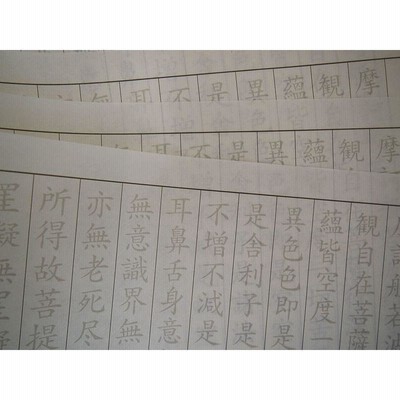 摩
観
蘊
異
是
不
耳
無
摩
観
蘊
異
是
不
耳
無
般若波
観自在菩薩
蘊皆空度一
異色色即是
是舎利子是
不増不減是
耳鼻舌身意
無意識界無
亦無老死尽
所得故菩提
罣礙無罣礙